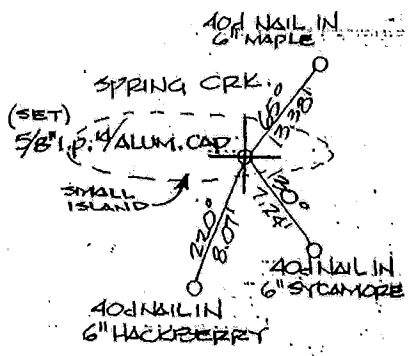 40d NAIL IN
6" MAPLE
SPRING CRK.
65°
13.38'
(SET)
5/8" I.P. W/ALUM. CAP
SMALL
ISLAND
130°
7.24'
220°
8.07'
40d NAIL IN
6" SYCAMORE
40d NAIL IN
6" HACKBERRY